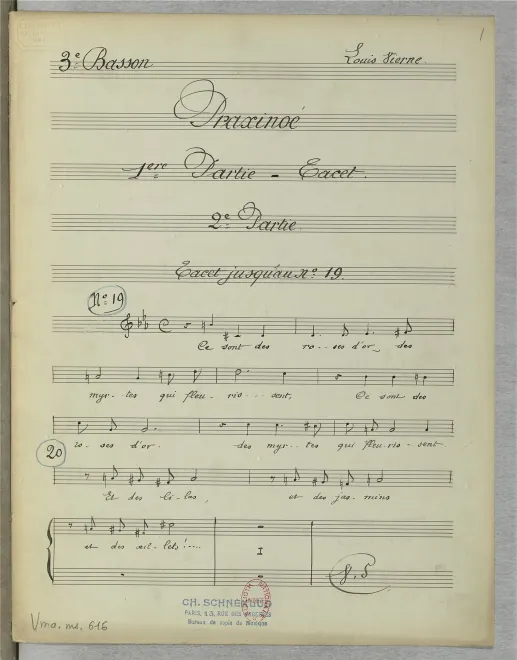 1
3e Basson Louis Vierne
Praxinoé
1ère Partie - Tacet.
2e Partie.
Tacet jusqu'au No 19.
No 19
Ce sont des ro--ses d'or, des
myr--tes qui fleu--ris---sent, Ce sont des
ro-ses d'or. des myr--tes qui fleu-ris-sent
20
Et des li-las, et des jas-mins
et des œil-lets!....
I
V.S
CH. SCHNÉKLUD
PARIS, RUE DES
Bureau de copie de Musique
Vma. ms. 616